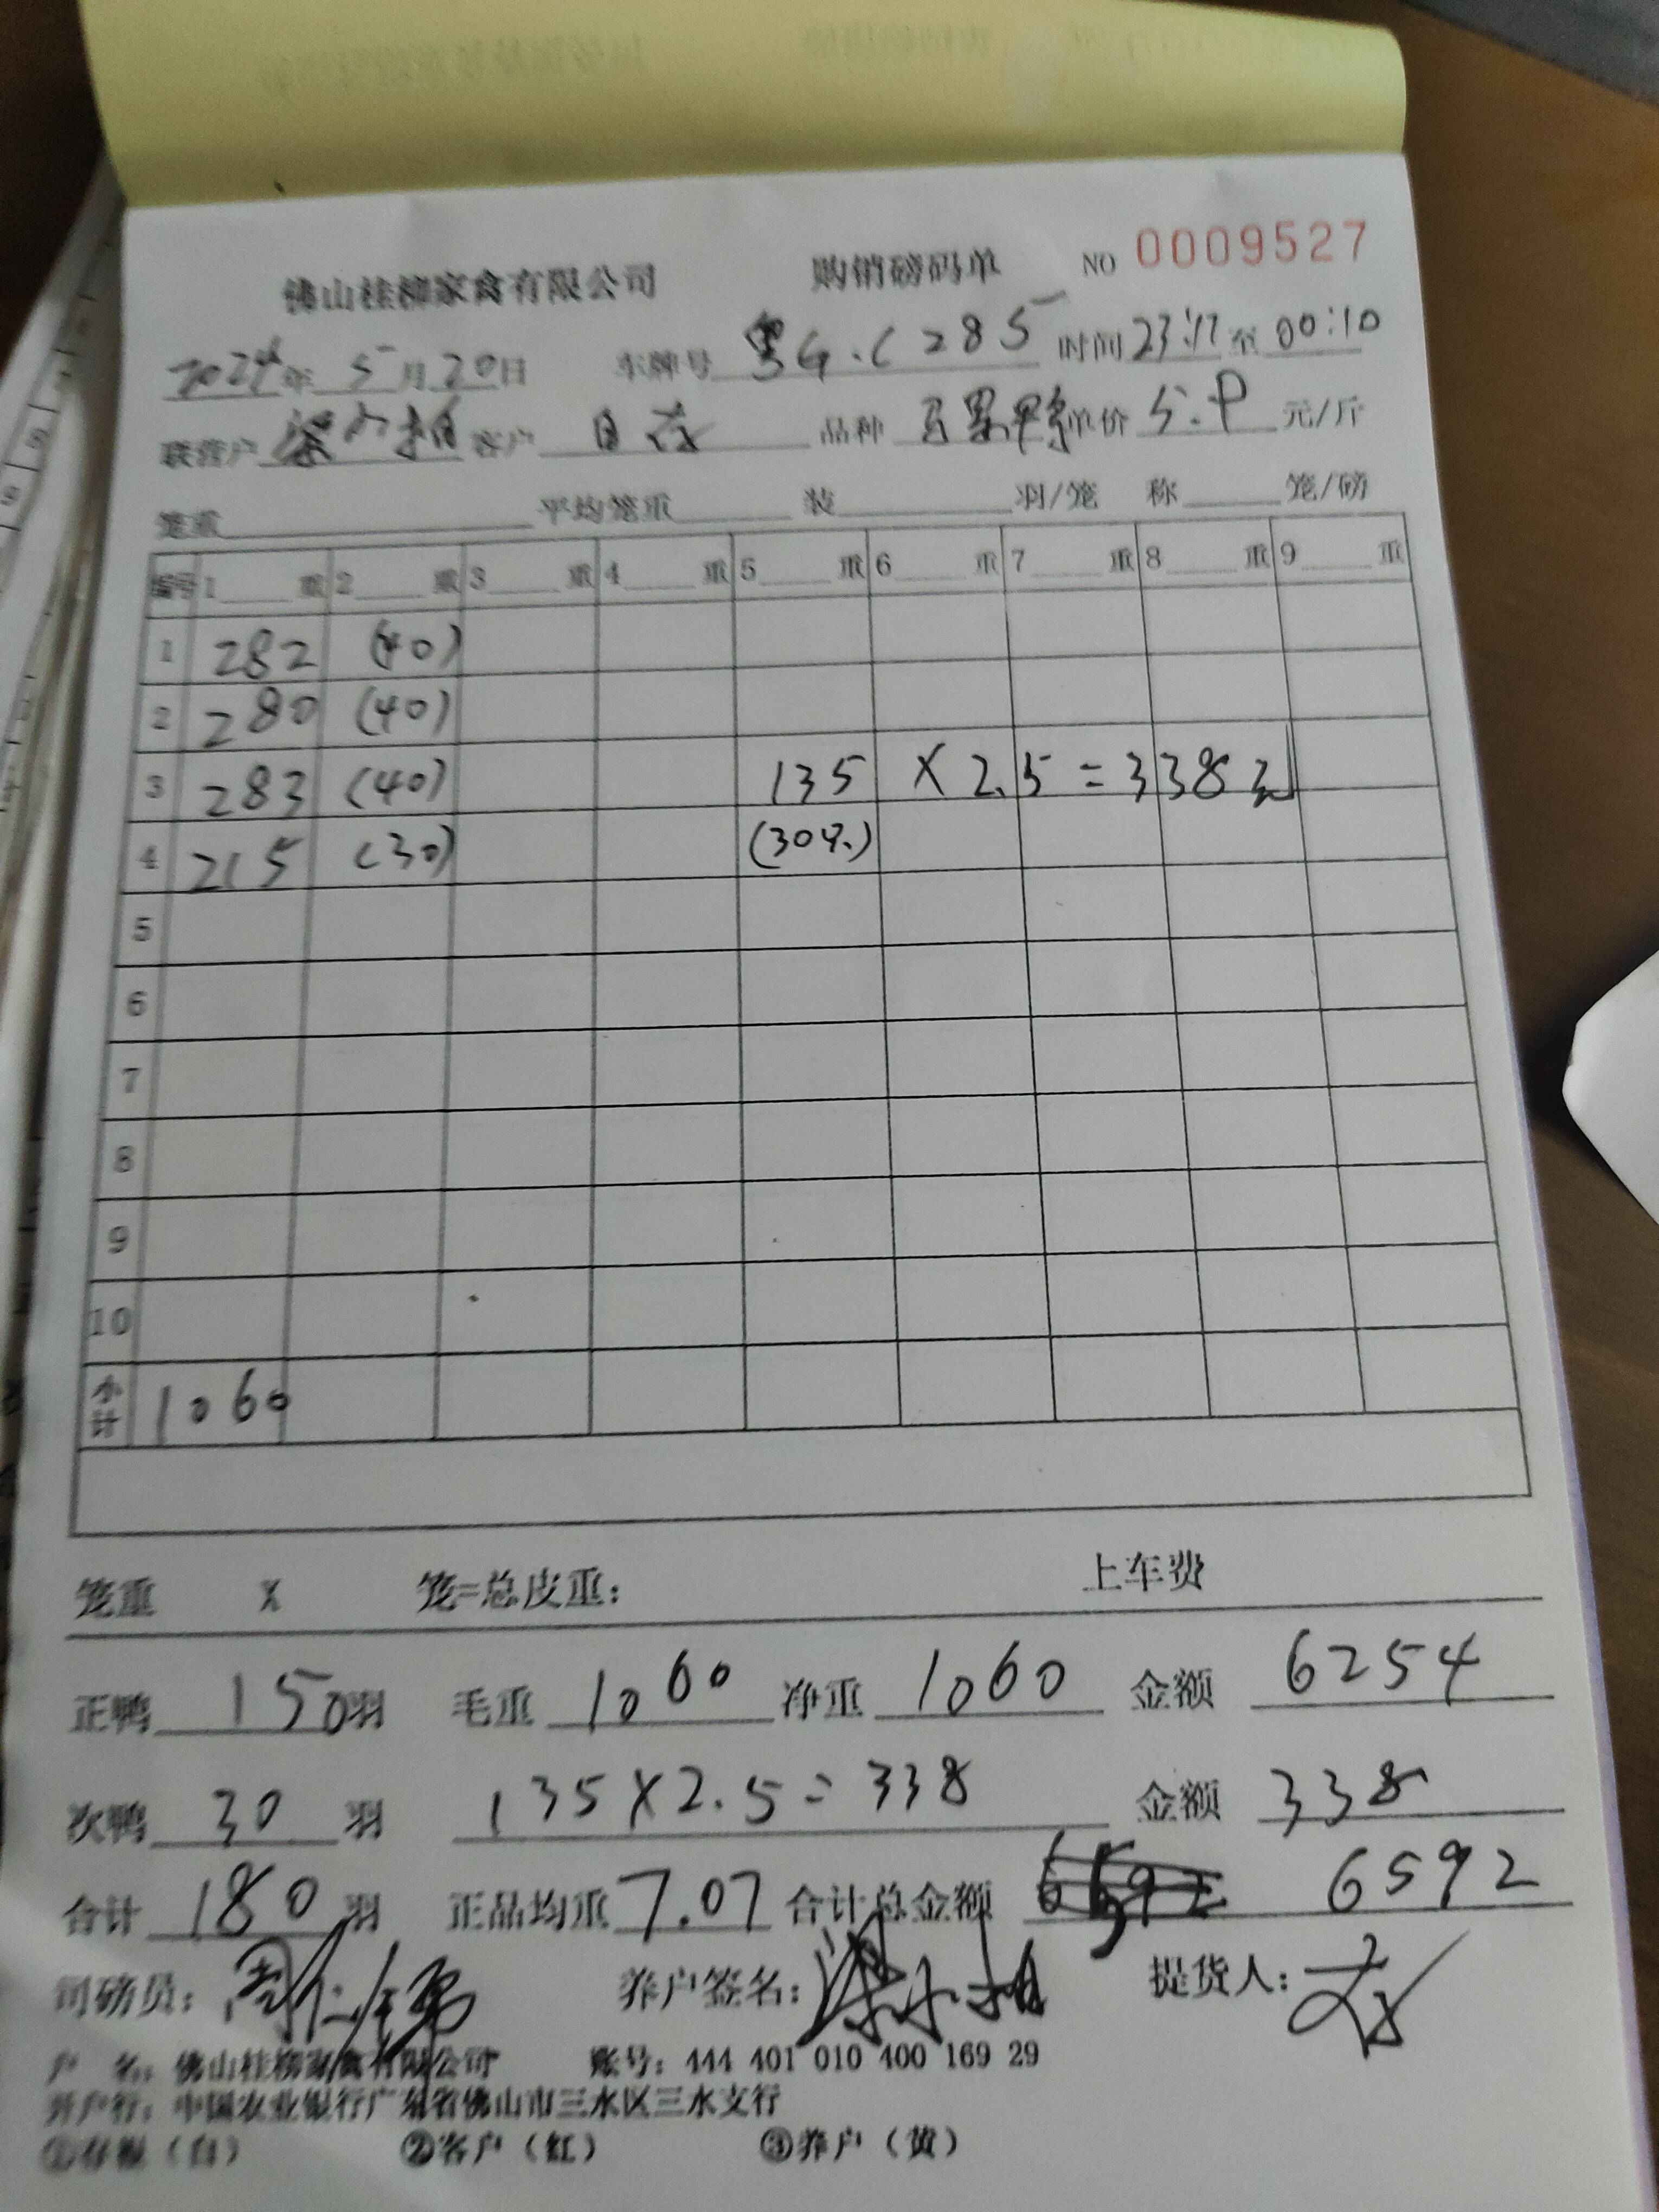 佛山桂柳家禽有限公司 购销磅码单 NO 0009527
2024年 5月20日 车牌号 粤G.C285 时间 23:17 至 00:10
联营户 客户 品种 单价 5.9 元/斤
笼重 平均笼重 装 羽/笼 称 笼/磅
编号 1 重 2 重 3 重 4 重 5 重 6 重 7 重 8 重 9 重
1 282 (40)
2 280 (40)
3 283 (40) 135 X 2.5 = 338
4 215 (30)
5
6
7
8
9
10
小计 1060
笼重 X 笼=总皮重: 上车费
正鸭 150 羽 毛重 1060 净重 1060 金额 6254
次鸭 30 羽 135X2.5=338 金额 338
合计 180 羽 正品均重 7.07 合计总金额 6592
司磅员: 养户签名: 提货人:
户 名: 佛山桂柳家禽有限公司 账号: 444 401 010 400 169 29
开户行: 中国农业银行广东省佛山市三水区三水支行
①存根（白） ②客户（红） ③养户（黄）